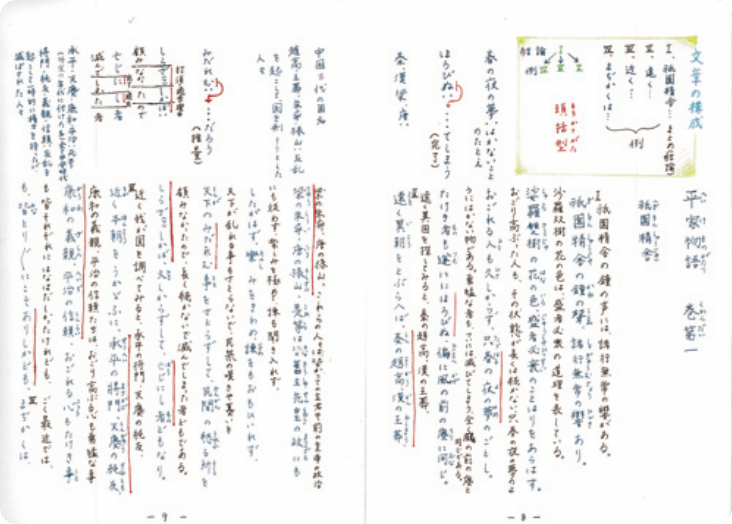 文章の構成
Ⅰ、祇園精舎…まとめ(結論)
Ⅱ、遠く…
Ⅲ、近く…
Ⅳ、まぢかくは…
例
結論
例
頭括型
平家物語 巻第一
祇園精舎
祇園精舎の鐘の声は、諸行無常の響がある。
祇園精舎の鐘の聲、諸行無常の響あり。
沙羅双樹の花の色は、盛者必衰の道理を表している。
沙羅雙樹の花の色、盛者必衰のことはりをあらはす。
おごり高ぶった人も、その状態が長くは続かない。只春の夜の夢のよ
おごれる人も久しからず、只春の夜の夢のごとし。
うにはかない物である。勇猛な者も、ついには滅びてしまう、全く風の前の塵と
同じである。
たけき者も遂にはほろびぬ、偏に風の前の塵に同じ。
遠く異国を探してみると、秦の趙高、漢の王莽、
遠く異朝をとぶらへば、秦の趙高、漢の王莽、
春の夜の夢…はかないこと
のたとえ
ほろびぬ…てしまう
(完了)
秦、漢、梁、唐…
中国古代の国名
趙高、王莽、朱异、禄山…反乱
を起こして、国を
人々
みだれむ…だろう
(推量)
梁の朱异、唐の禄山、
梁の朱异、唐の禄山、是等は皆舊主先皇の政にも
にも従わず、楽しみを極め、諫も聞き入れず、
したがはず、楽しみをきはめ、諫をもおもひいれず、
天下が乱れる事もさとらないで、民衆の嘆きや憂いを
天下のみだれむ事をさとらずして、民間の愁る所を
顧みなかったので、長く続かないで滅んでしまった者どもである。
しらざりしかば、久しからずして、亡じにし者どもなり。
近く我が国を調べてみると、承平の将門、天慶の純友、
近く本朝をうかがふに、承平の將門、天慶の純友、
康和の義親、平治の信頼たちは、おごり高ぶる心も勇猛な事
康和の義親、平治の信賴、おごれる心もたけき事
も皆それぞれにはなはだしかったけれども、ごく最近では、
も、皆とりどりにこそありしかども、まぢかくは、
しらざりしかば
顧みなかったので
亡じにし者
滅んでしまった者
承平、天慶、康和、平治…元号
将門、純友、義親、信頼…反乱を
滅ぼされた人々
- 8 -
- 9 -